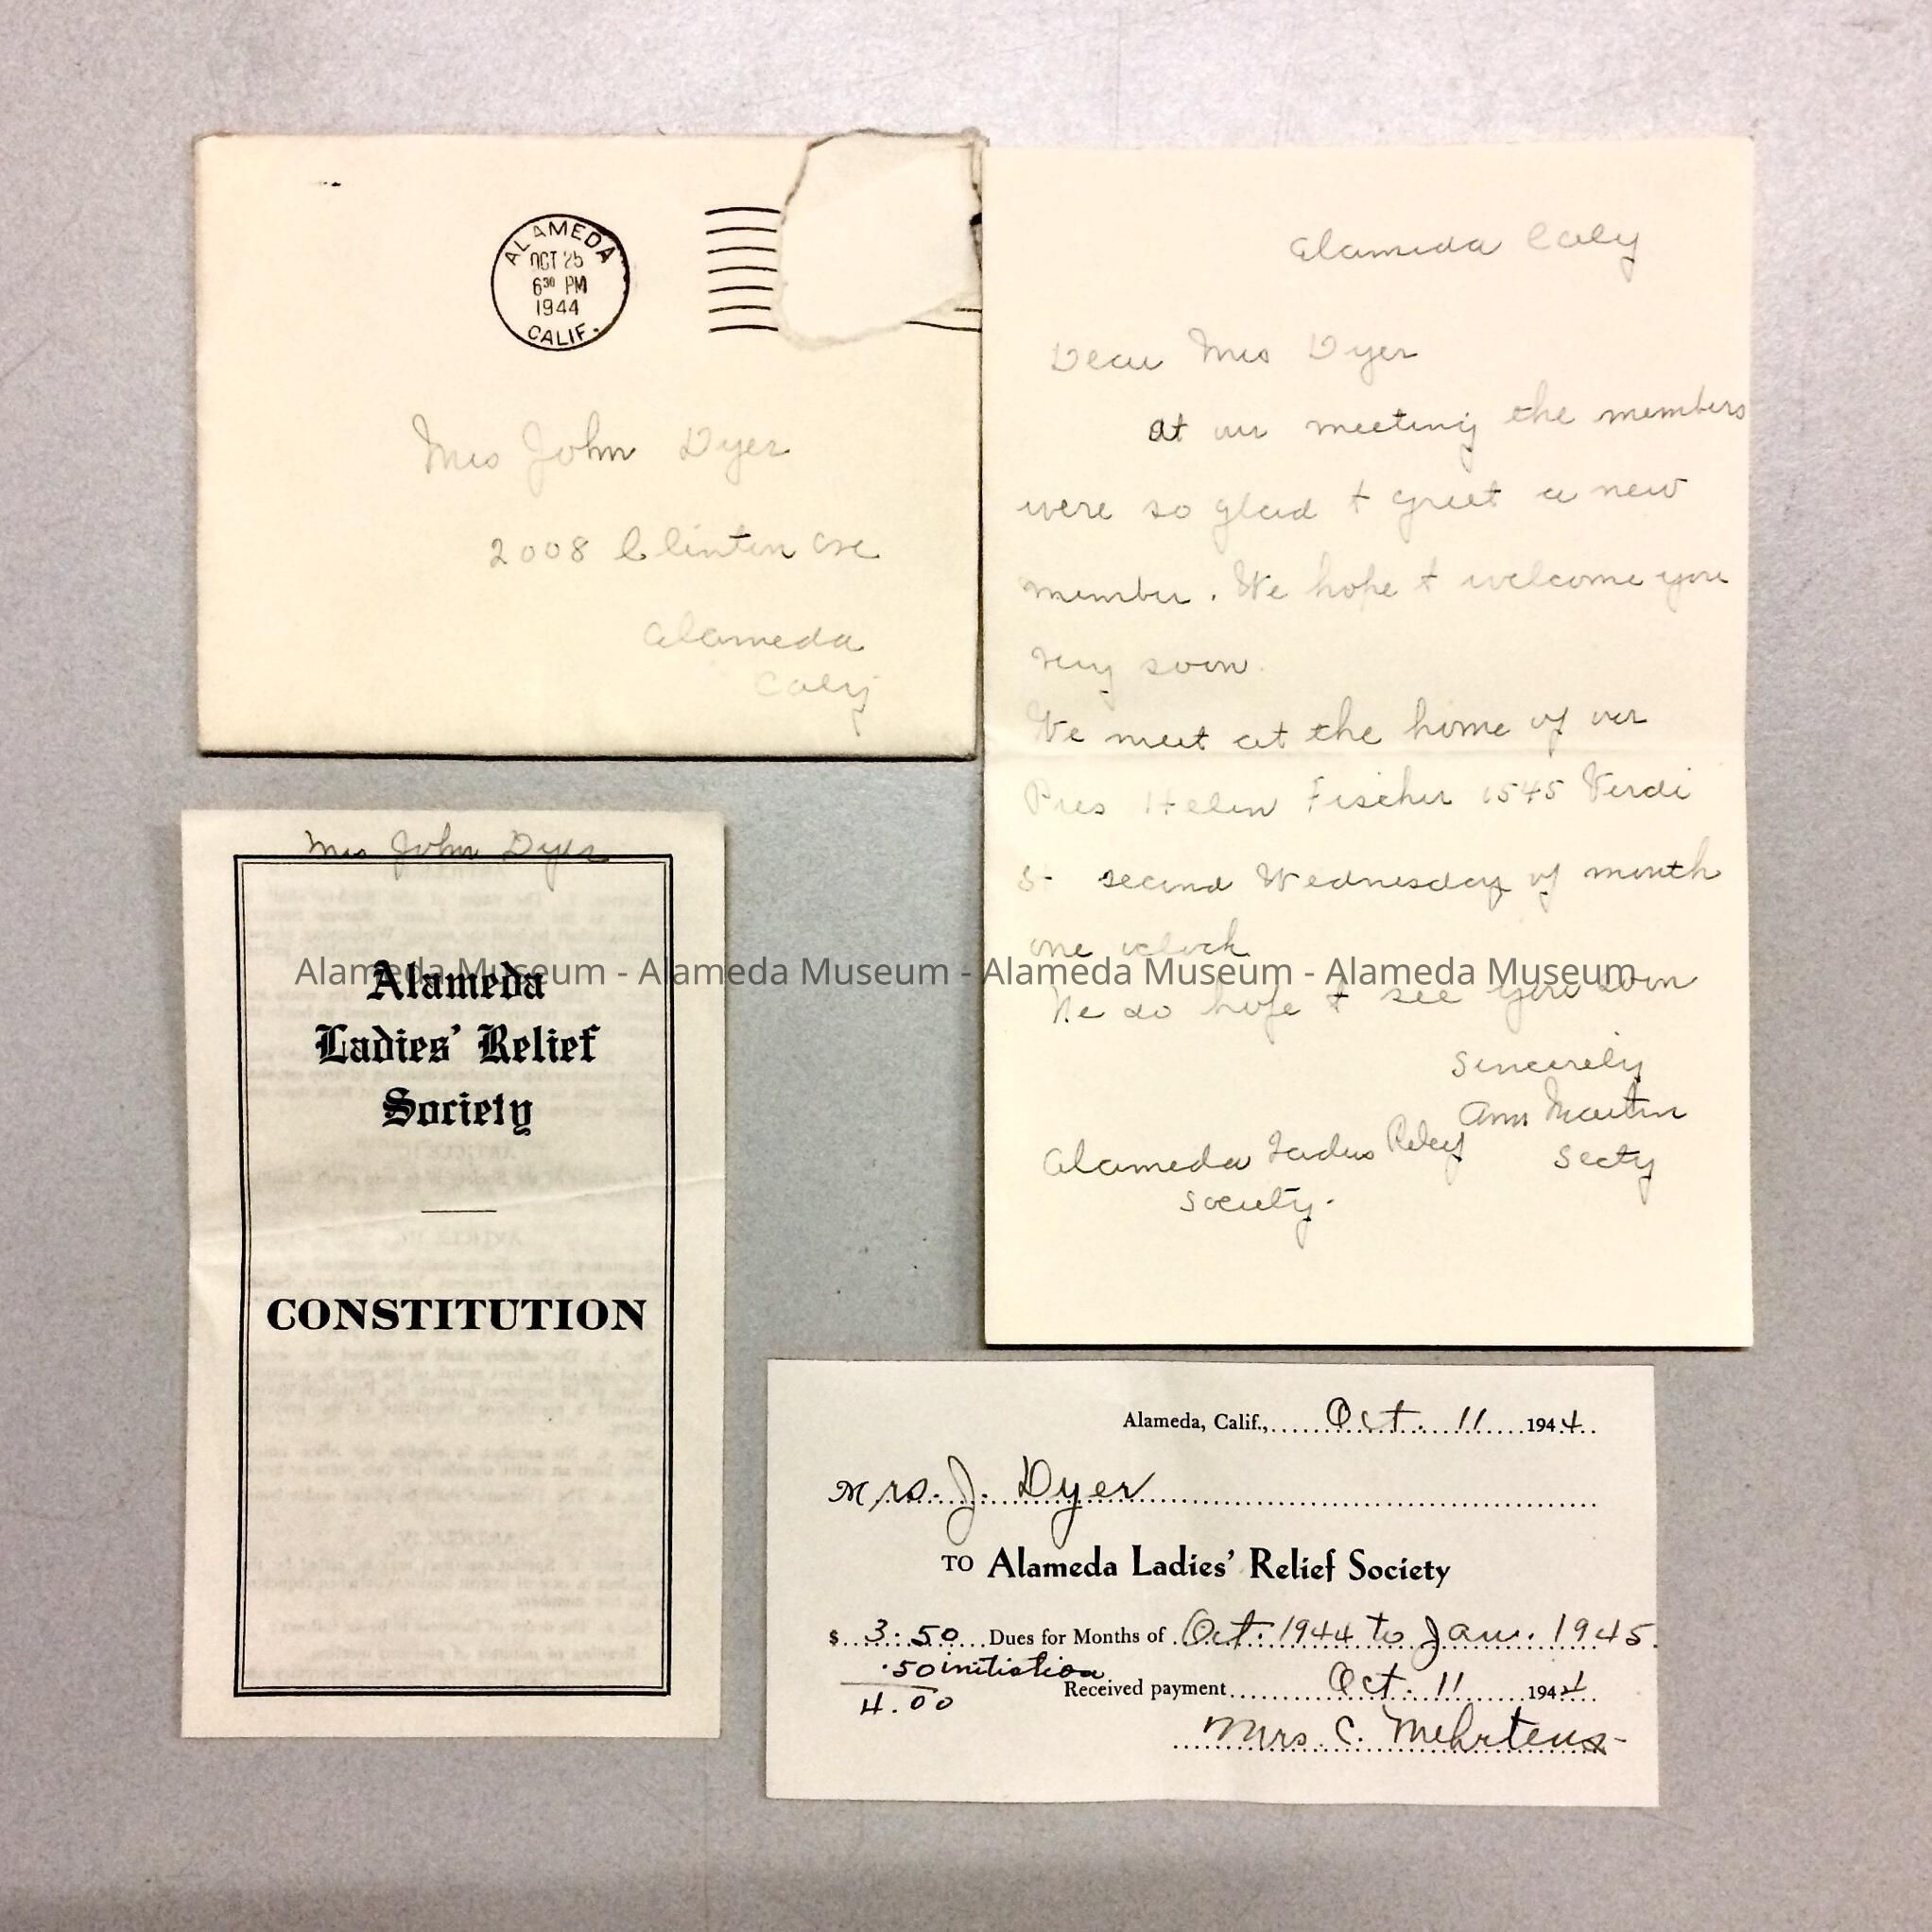 ALAMEDA
OCT 25
6 30 PM
1944
CALIF.
Mrs John Dyer
2008 Clinton ave
Alameda
Calif
Alameda Calif
Dear Mrs Dyer
At our meeting the members
were so glad t greet a new
member. We hope t welcome you
very soon.
We meet at the home of our
Pres Helen Fischer 1545 Verdi
St second Wednesday of month
one oclock
We do hope t see you soon
Sincerely
Ann Martin
Alameda Ladies Relief Secty
Society.
Mrs John Dyer
Alameda
Ladies' Relief
Society
CONSTITUTION
Alameda Museum - Alameda Museum - Alameda Museum - Alameda Museum
Alameda, Calif., Oct. 11 1944
Mrs. J. Dyer
TO Alameda Ladies' Relief Society
$ 3.50 Dues for Months of Oct. 1944 to Jan. 1945.
.50 initiation
Received payment Oct. 11 1944
4.00
Mrs. C. Mehrtens